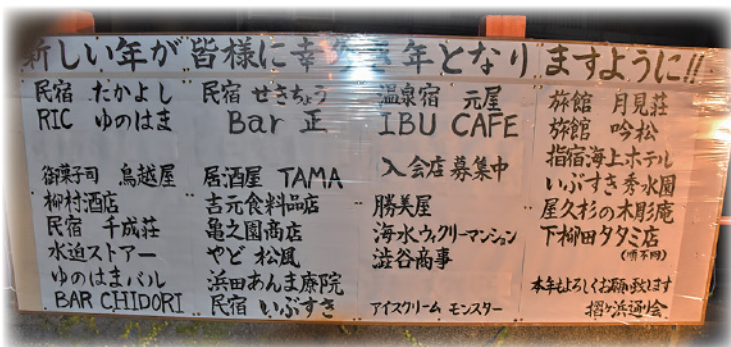 新しい年が皆様に幸多き年となりますように!!
民宿 たかよし
RIC ゆのはま
御菓子司 鳥越屋
柳村酒店
民宿 千成荘
水迫ストアー
ゆのはまバル
BAR CHIDORI
民宿 せきちょう
Bar 正
居酒屋 TAMA
吉元食料品店
亀之園商店
やど 松風
浜田あんま療院
民宿 いぶすき
温泉宿 元屋
IBU CAFE
入会店募集中
勝美屋
海水ウィクリーマンション
澁谷商事
アイスクリーム モンスター
旅館 月見荘
旅館 吟松
指宿海上ホテル
いぶすき秀水園
屋久杉の木彫庵
下柳田タタミ店
(順不同)
本年もよろしくお願い致します
摺ヶ浜通り会